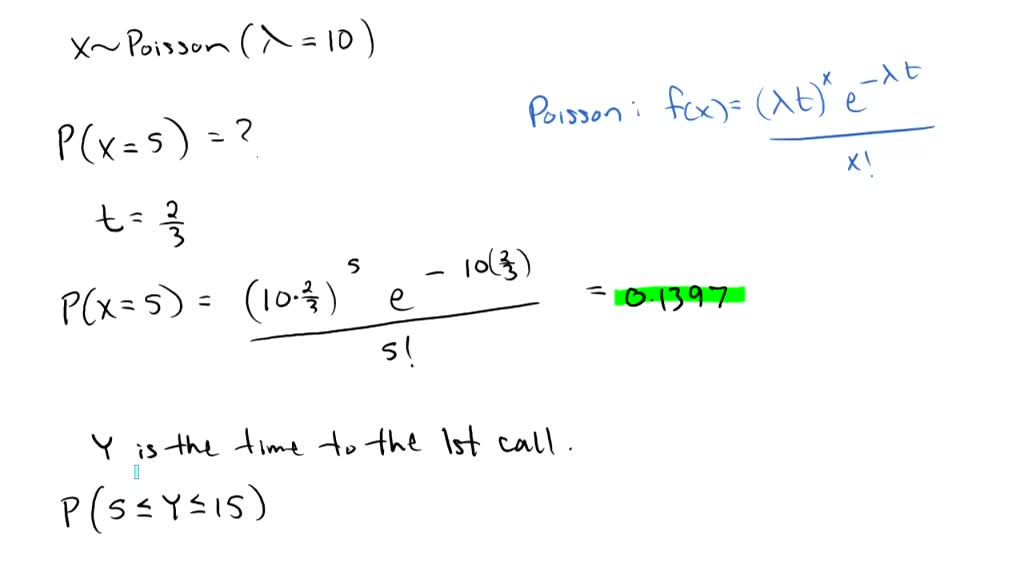 X~Poisson (λ = 10)
Poisson: f(x) = (λt)^x e^{-λt} / x!
P(x=5) = ?
t = 2/3
P(x=5) = (10·2/3)^5 e^{-10(2/3)} / 5! = 0.1397
Y is the time to the 1st call.
P(5 ≤ Y ≤ 15)